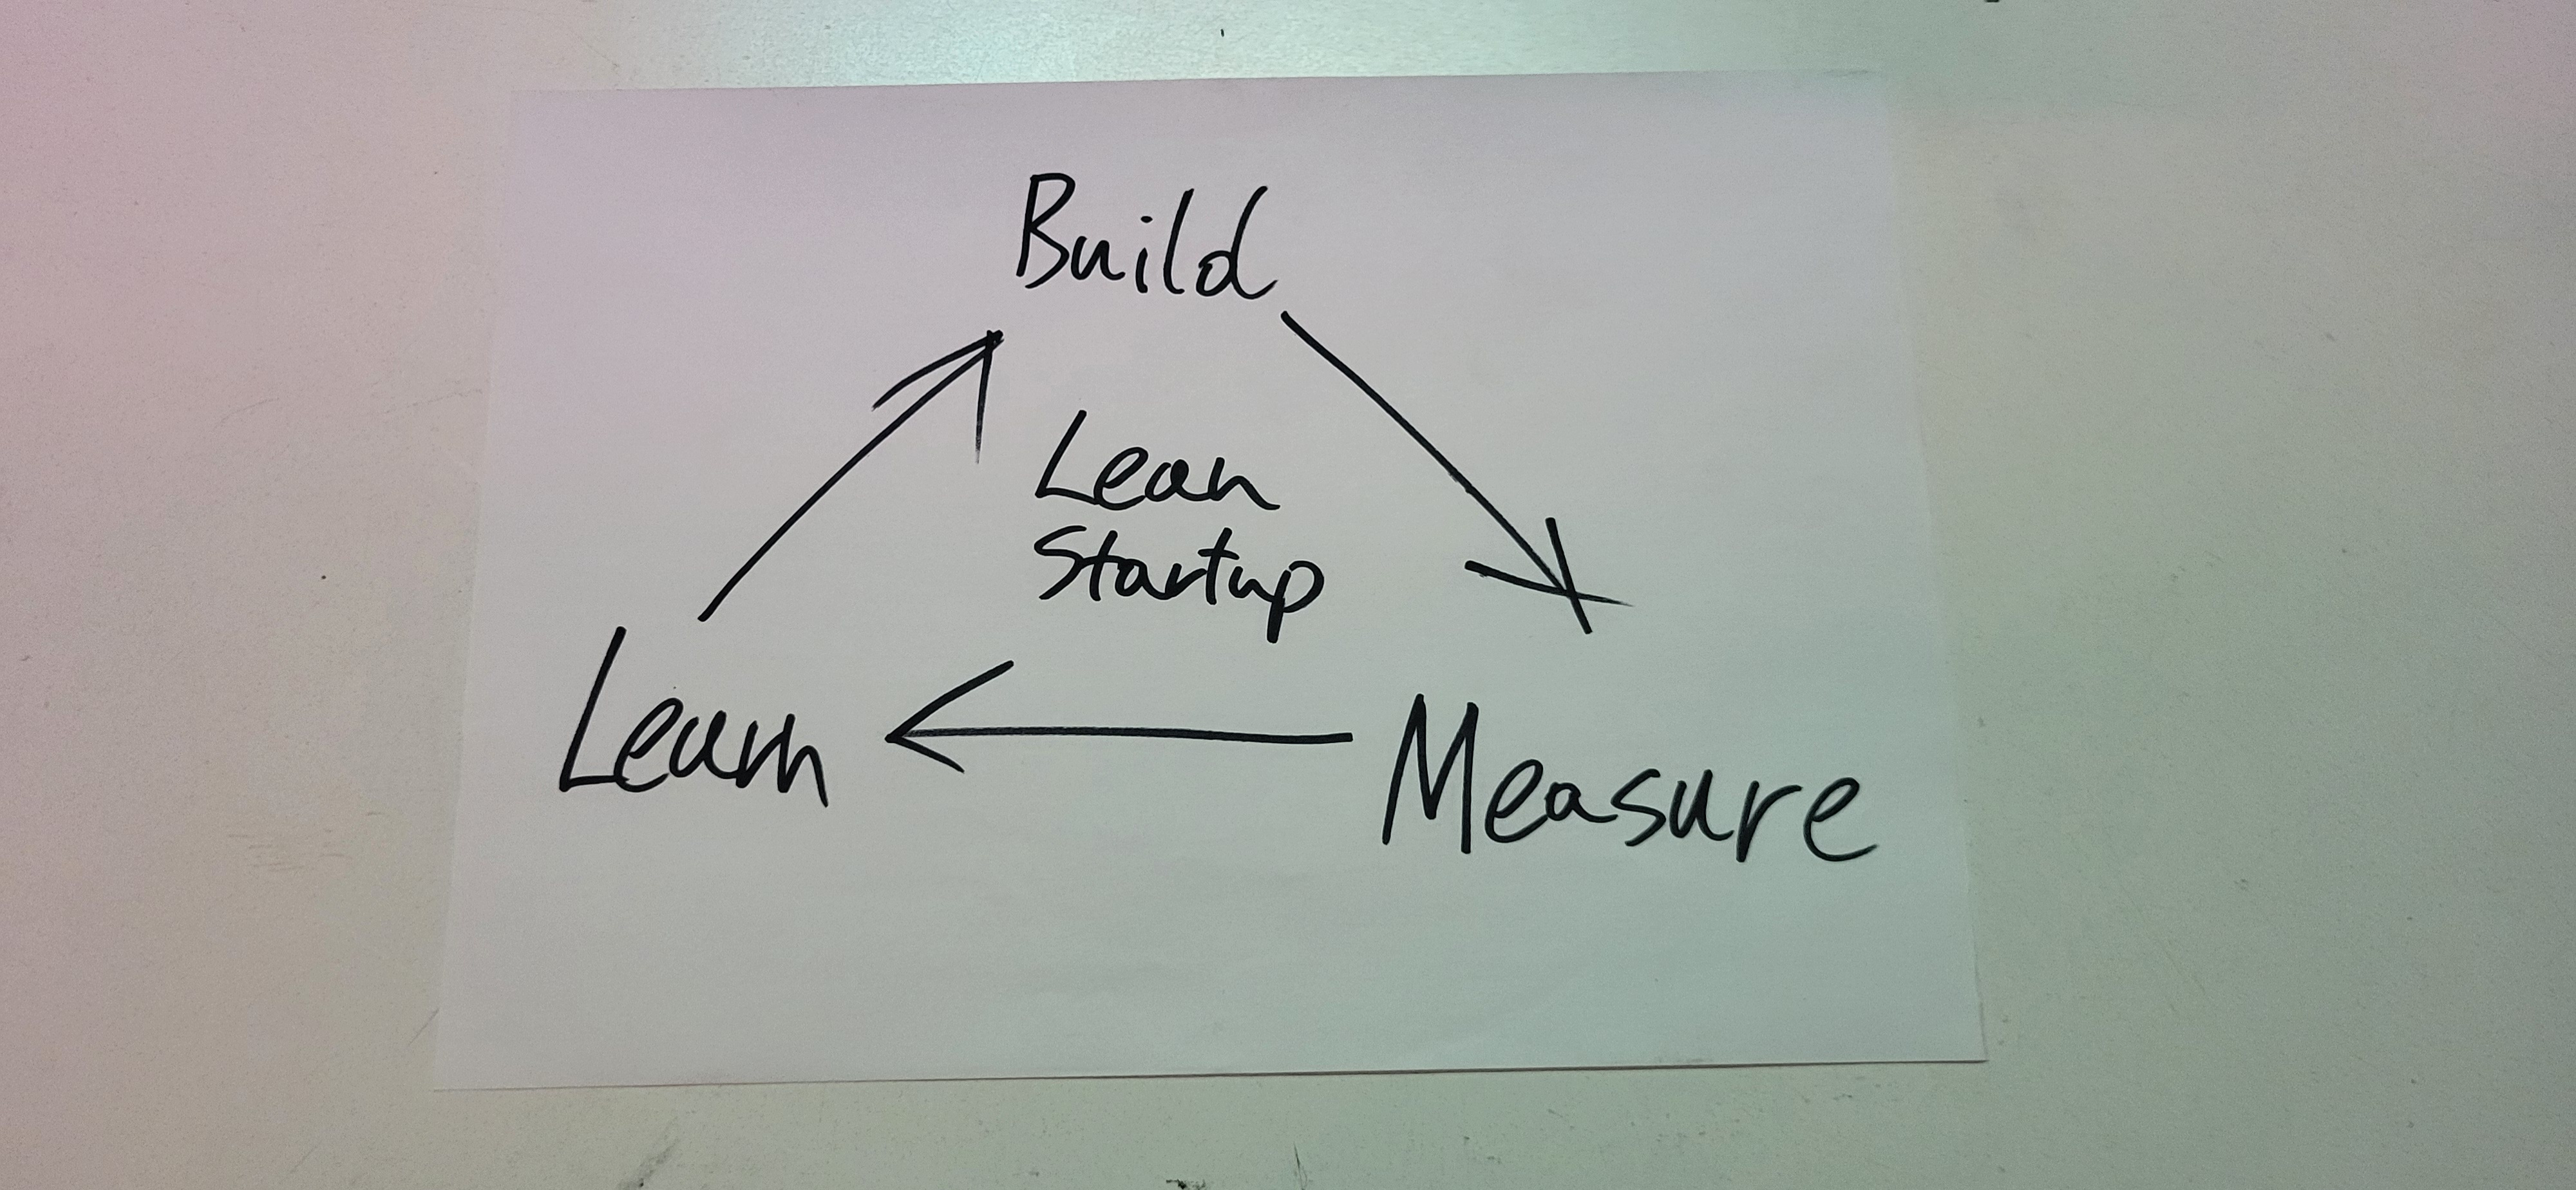 Build
Lean
Startup
Learn
Measure